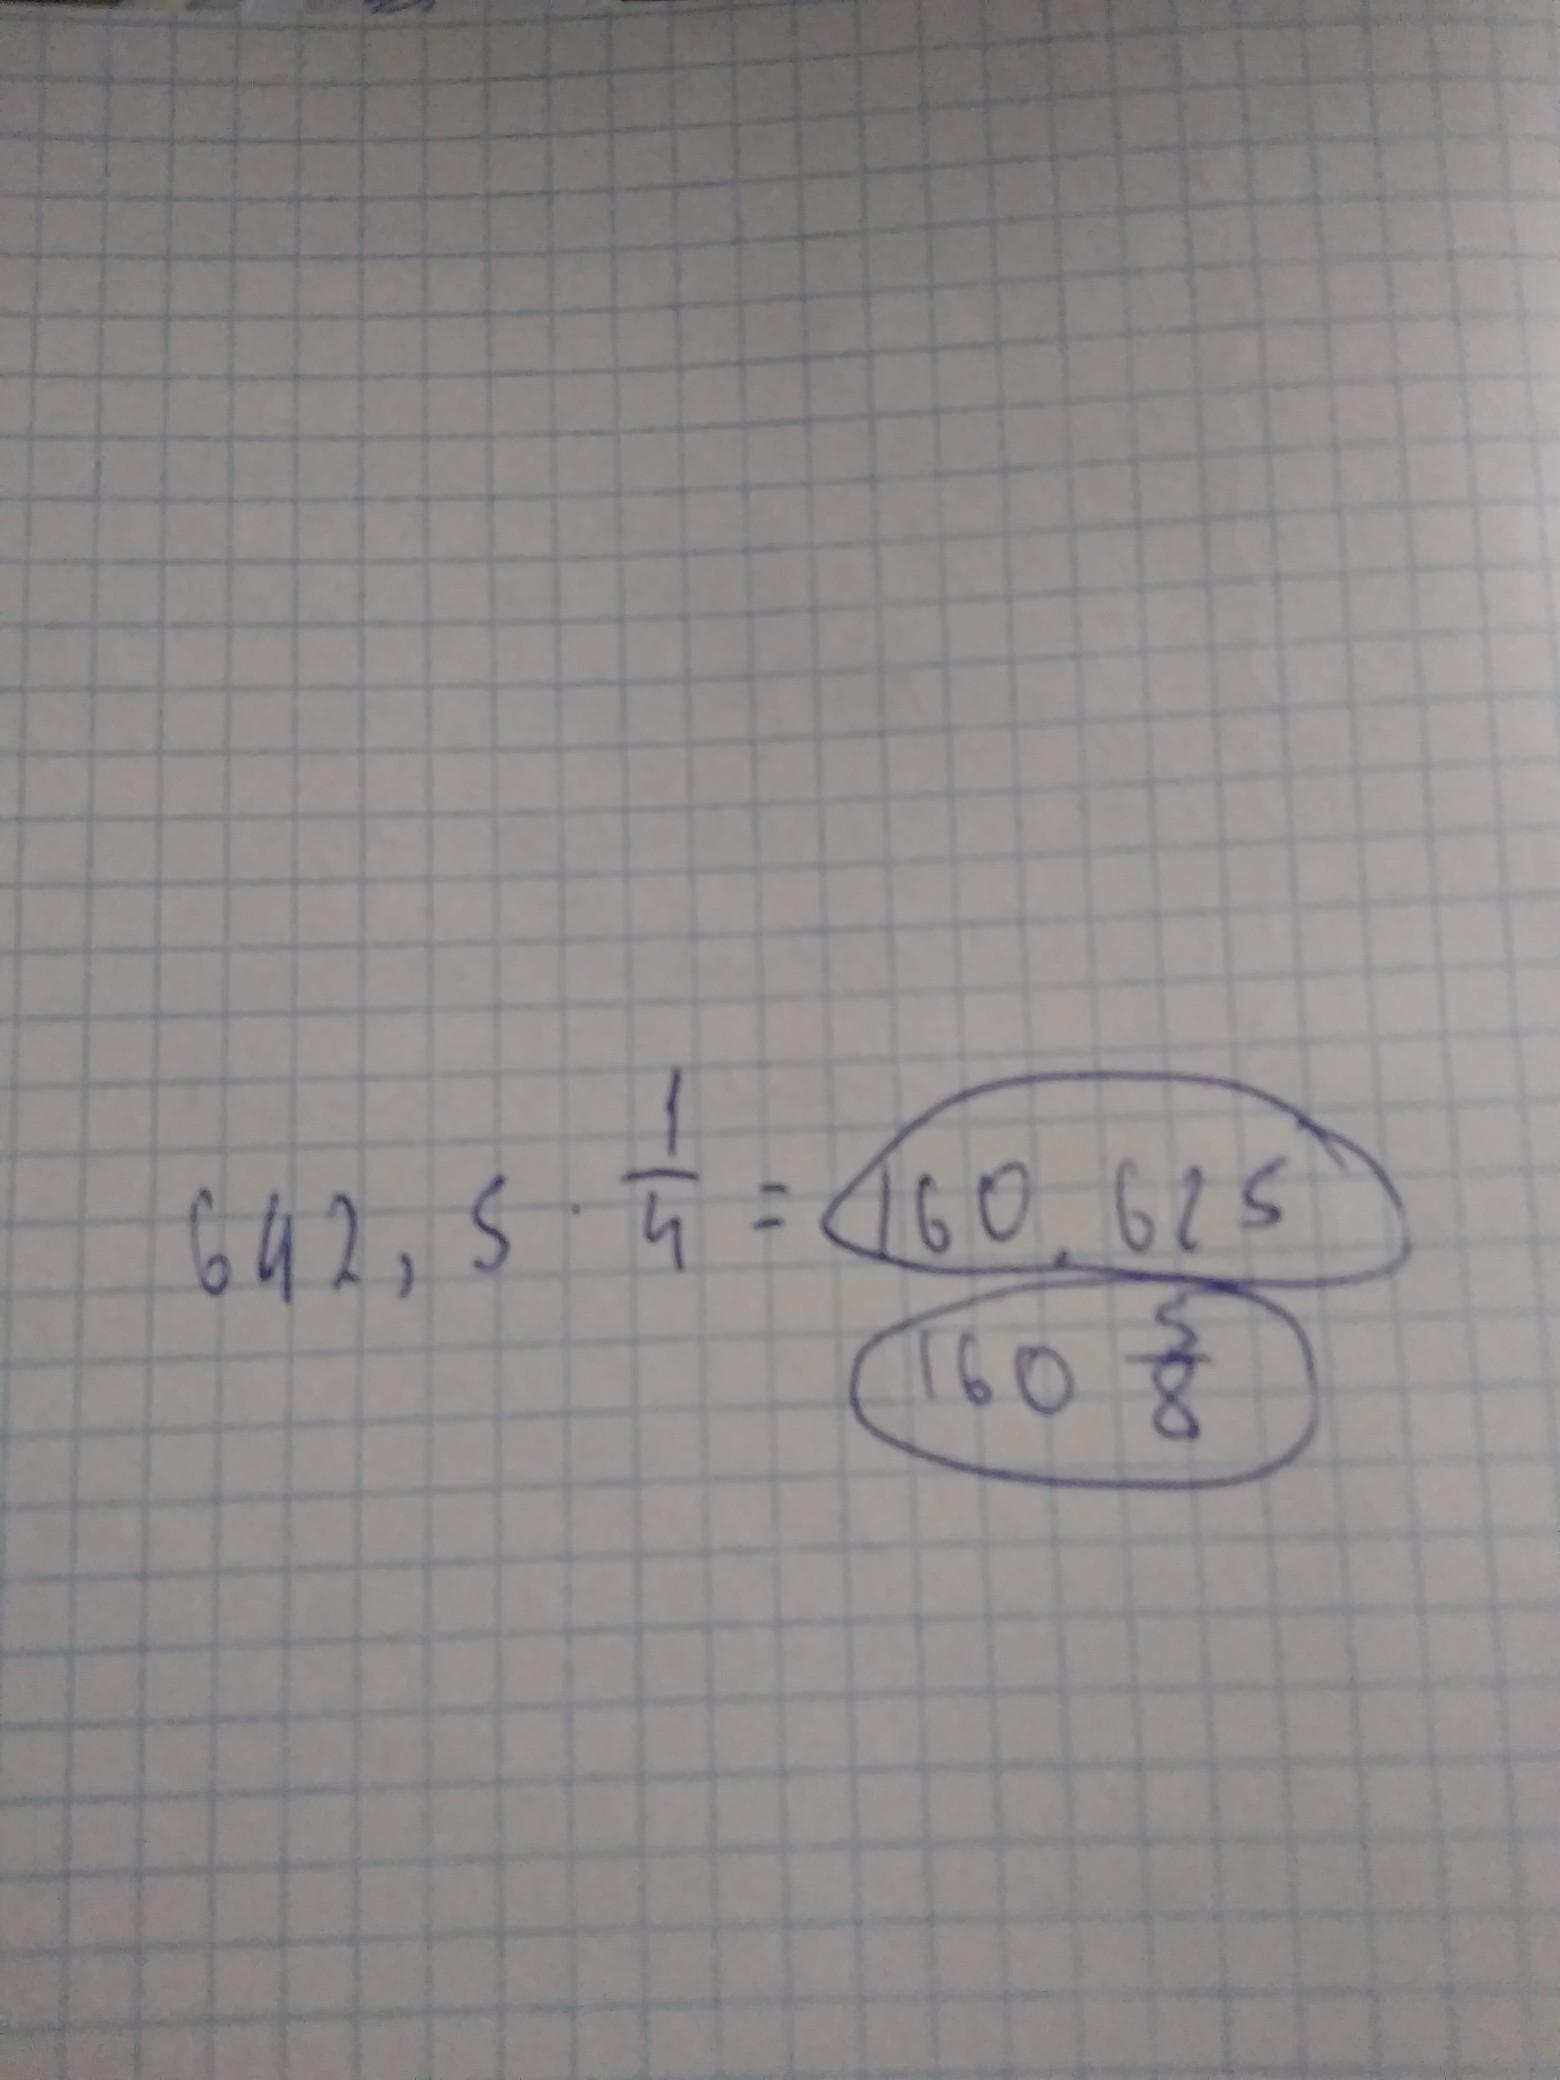 642,5 · 1/4 = 160.625
160 5/8